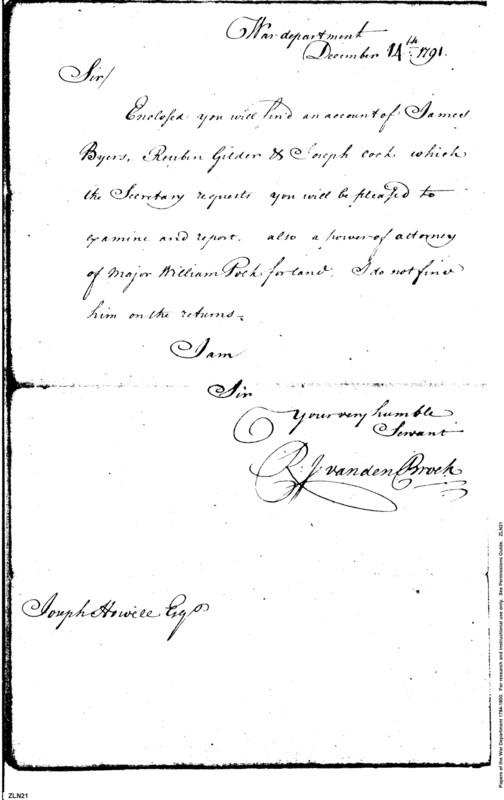 War department
December 14th 1791.
Sir/
Enclosed you will find an account of James
Byers, Reuben Gilder & Joseph Cock which
the Secretary requests you will be pleased to
examine and report. also a power of attorney
of Major William Polk for land. I do not find
him on the returns.
I am
Sir
Your very humble
Servant
R. J. vanden Broek
Joseph Howell Esqr
Papers of the War Department 1784-1800. For research and instructional use only. See Permissions Guide. ZLN21
ZLN21